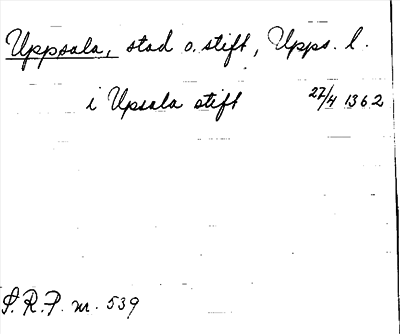 Uppsala, stad o. stift, Upps. l.
i Upsala stift 27/4 1362
S.R.P. nr. 539